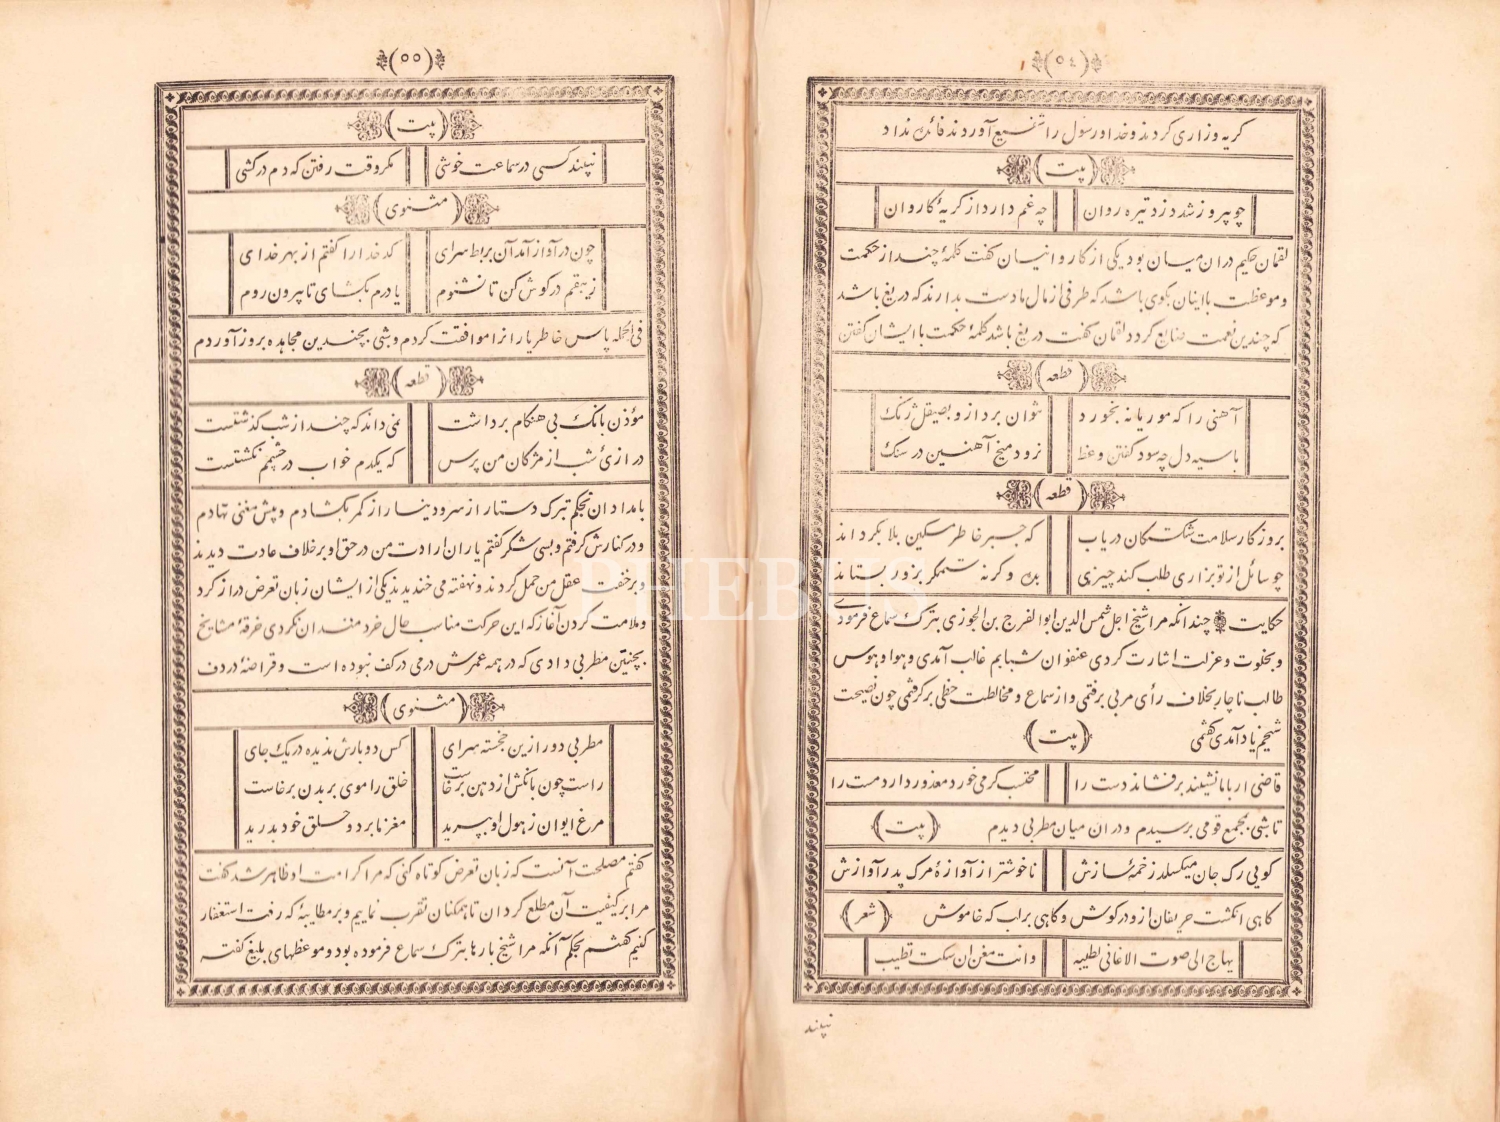 (٥٤)
کریه وزاری کردند وخدا ورسول را شفیع آوردند فائدت نداد
(بیت)
چو پیروز شد دزد تیره روان چه غم دارد از کریهٔ کاروان
لقمان حکیم دران میان بود یکی از کاروانیان کفت کلمهٔ چند از حکمت
وموعظت با اینان بکوی باشد که طرفی از مال ما دست بدارند که دریغ باشد
که چندین نعمت ضایع کردد لقمان کفت دریغ باشد کلمهٔ حکمت با ایشان کفتن
(قطعه)
آهنی را که موریانه بخورد نتوان برد ازو بصیقل ژنک
با سیه دل چه سود کفتن وعظ نرود میخ آهنین در سنک
(قطعه)
بروزکار سلامت شکستکان دریاب که جبر خاطر مسکین بلا بکرداند
چو سائل از تو بزاری طلب کند چیزی بده وکرنه ستمکر بزور بستاند
حکایت چندانکه مرا شیخ اجل شمس الدین ابو الفرج بن الجوزی بترک سماع فرمودی
وبخلوت وعزلت اشارت کردی عنفوان شبابم غالب آمدی وهوا وهوس
طالب ناچار بخلاف رأی مربی برفتمی واز سماع ومخالطت حظی برکرفتمی چون نصیحت
شیخم یاد آمدی کفتمی (بیت)
قاضی ار با ما نشیند برفشاند دست را محتسب کر می خورد معذور دارد مست را
تا شبی بمجمع قومی برسیدم ودران میان مطربی دیدم (بیت)
کویی رک جان میکسلد زخمهٔ سازش ناخوشتر از آوازهٔ مرک پدر آوازش
کاهی انکشت حریفان ازو در کوش وکاهی بر لب که خاموش (شعر)
یهاج الی صوت الاغانی لطیبه وانت مغن ان سکت تطیب
نبیند
(٥٥)
(بیت)
نبیند کسی در سماعت خوشی مکر وقت رفتن که دم درکشی
(مثنوی)
چون در آواز آمد آن بربط سرای کدخدا را کفتم از بهر خدای
زیبقم در کوش کن تا نشنوم یا درم بکشای تا بیرون روم
فی الجمله پاس خاطر یارانرا موافقت کردم وشبی بچندین مجاهده بروز آوردم
(قطعه)
مؤذن بانک بی هنکام برداشت نمی داند که چند از شب کذشتست
درازیٔ شب از مژکان من پرس که یکدم خواب در چشمم نکشتست
بامدادان بحکم تبرک دستار از سر ودینار از کمر بکشادم وپیش مغنی نهادم
ودر کنارش کرفتم وبسی شکر کفتم یاران ارادت من در حق او بر خلاف عادت دیدند
وبر خفت عقل من حمل کردند ونهفته می خندیدند یکی از ایشان زبان تعرض دراز کرد
وملامت کردن آغاز که این حرکت مناسب حال خردمندان نکردی خرقهٔ مشایخ
بچنین مطربی دادی که در همه عمرش درمی در کف نبوده است وقراضهٔ در دف
(مثنوی)
مطربی دور ازین خجسته سرای کس دوبارش ندیده در یک جای
راست چون بانکش از دهن برخاست خلق را موی بر بدن برخاست
مرغ ایوان ز هول او بپرید مغز ما برد وحلق خود بدرید
کفتم مصلحت آنست که زبان تعرض کوتاه کنی که مرا کرامت او ظاهر شد کفت
مرا بر کیفیت آن مطلع کردان تا همکنان تقرب نماییم وبر مطایبهٔ که رفت استغفار
کنیم کفتم بحکم آنکه مرا شیخ بارها بترک سماع فرموده بود وموعظهای بلیغ کفته
PHEBUS